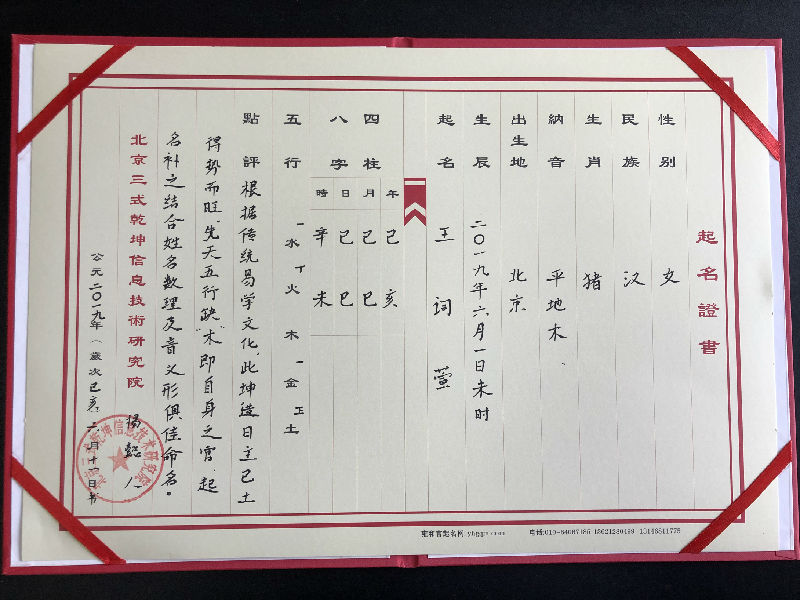 起名證書
性别 女
民族 汉
生肖 猪
納音 平地木
出生地 北京
生辰 二〇一九年六月一日未时
起名 王词萱
四柱 年 月 日 時
八字 己亥 己巳 己巳 辛未
五行 一水 丅火 木 一金 正土
點評 根据傳统易学文化,此坤造日主己土
得势而旺、先天五行缺"木"即自身之官、起
名补之结合姓名数理及音义形俱佳命名。
北京三式乾坤信息技術研究院 杨懿人
公元二〇一九年(歲次己亥)六月十一日书
北京三式乾坤信息技术研究院
雍和宫起名网
电话:010-64087186 13621280499 13146811775